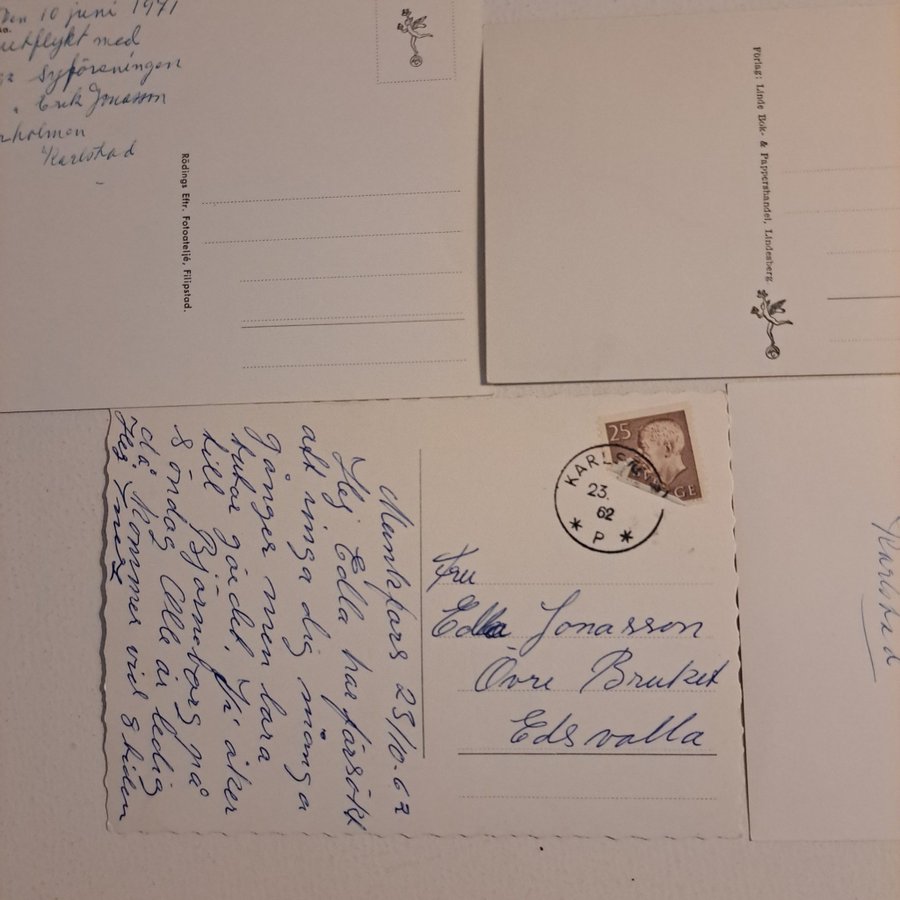 Den 10 juni 1971
utflykt med
syföreningen
Erik Jonasson
Karlstad
Rödings Eftr. Fotoateljé, Filipstad.
Förlag: Linde Bok- & Pappershandel, Lindesberg
Munkfors 23/10.62
Hej Edla har försökt
att ringa dig många
gånger men bara
tutar går det. Vi åker
till Björneborg på
söndag Alla är lediga
då kommer vid 8 tiden
Hej Inez
25
SVERIGE
KARLSTAD
23.
62
* P *
Fru
Edla Jonasson
Övre Bruket
Edsvalla
Karlstad